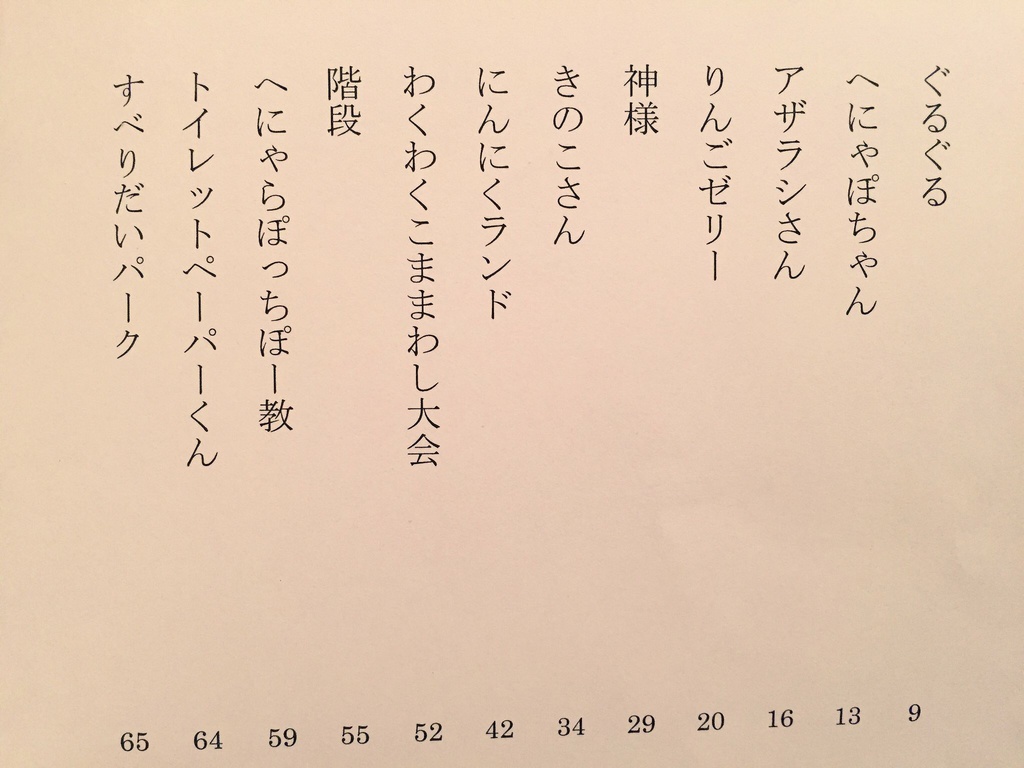 ぐるぐる 9
へにゃぽちゃん 13
アザラシさん 16
りんごゼリー 20
神様 29
きのこさん 34
にんにくランド 42
わくわくこままわし大会 52
階段 55
へにゃらぽっちぽー教 59
トイレットペーパーくん 64
すべりだいパーク 65